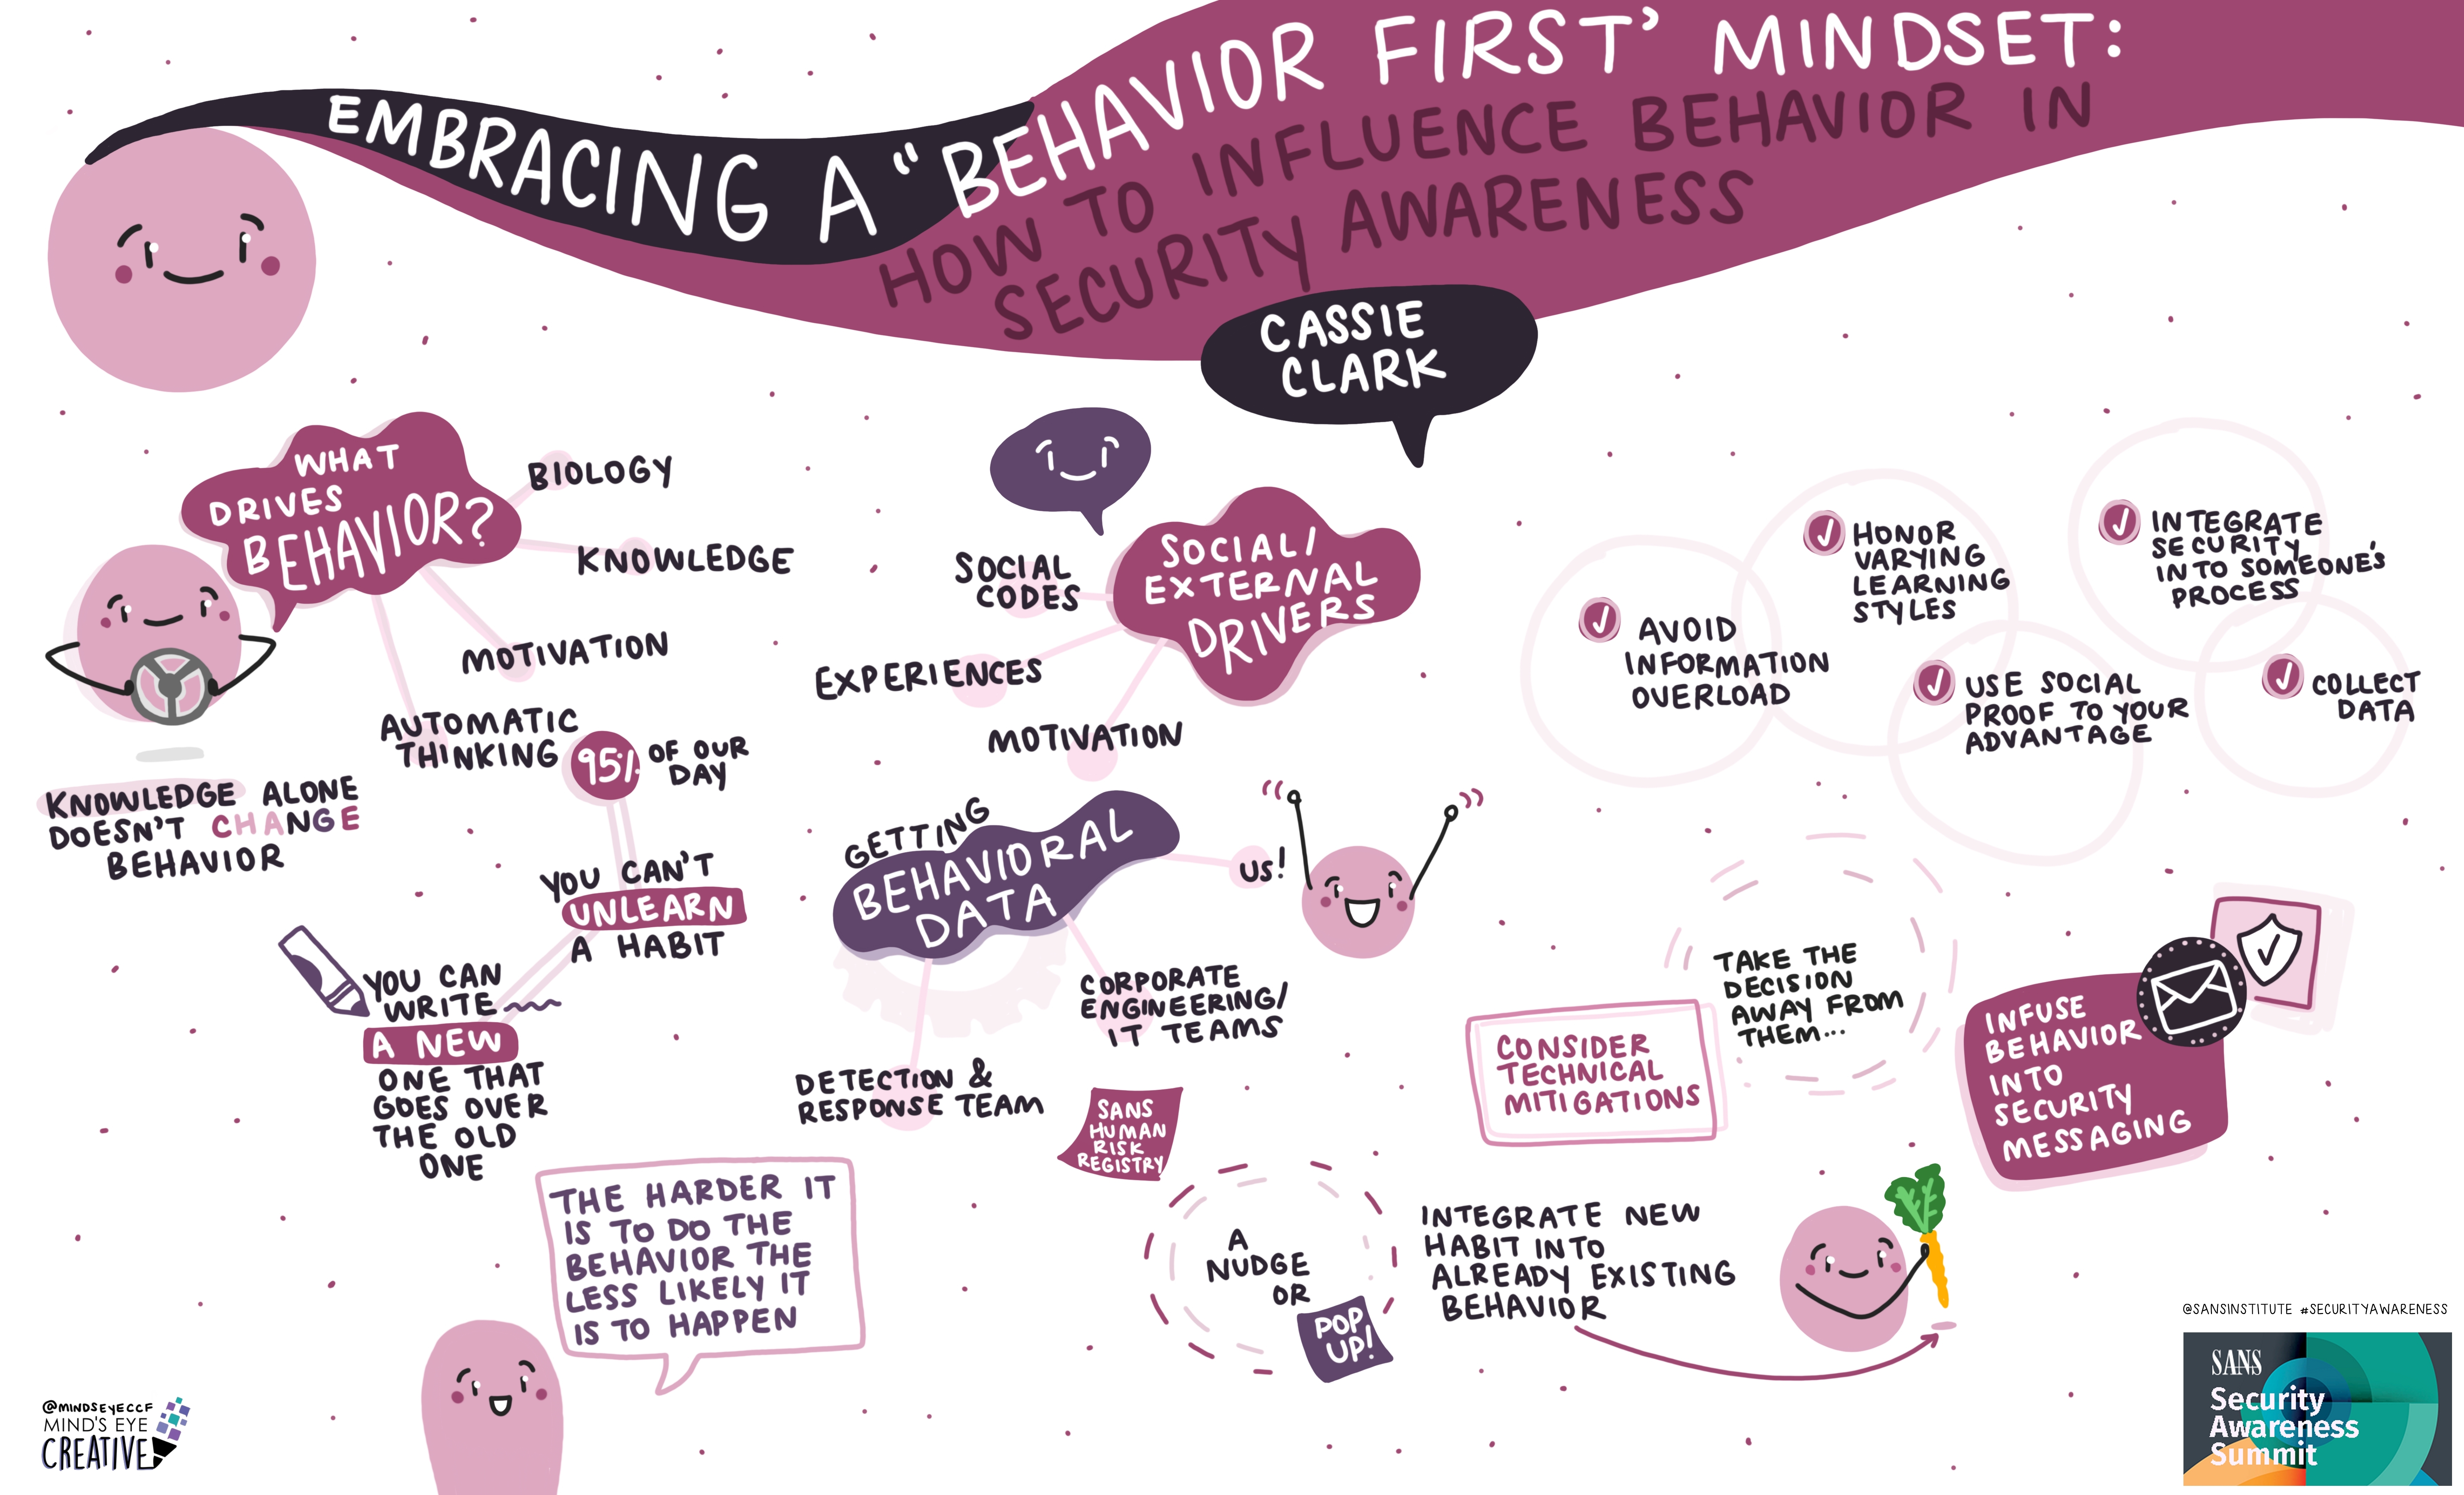 EMBRACING A "BEHAVIOR FIRST' MINDSET:
HOW TO INFLUENCE BEHAVIOR IN
SECURITY AWARENESS
CASSIE
CLARK
WHAT
DRIVES
BEHAVIOR?
BIOLOGY
KNOWLEDGE
MOTIVATION
AUTOMATIC
THINKING
95%
OF OUR
DAY
KNOWLEDGE ALONE
DOESN'T CHANGE
BEHAVIOR
YOU CAN'T
UNLEARN
A HABIT
YOU CAN
WRITE
A NEW
ONE THAT
GOES OVER
THE OLD
ONE
THE HARDER IT
IS TO DO THE
BEHAVIOR THE
LESS LIKELY IT
IS TO HAPPEN
SOCIAL/
EXTERNAL
DRIVERS
SOCIAL
CODES
EXPERIENCES
MOTIVATION
GETTING
BEHAVIORAL
DATA
US!
CORPORATE
ENGINEERING/
IT TEAMS
DETECTION &
RESPONSE TEAM
SANS
HUMAN
RISK
REGISTRY
AVOID
INFORMATION
OVERLOAD
HONOR
VARYING
LEARNING
STYLES
USE SOCIAL
PROOF TO YOUR
ADVANTAGE
INTEGRATE
SECURITY
INTO SOMEONE'S
PROCESS
COLLECT
DATA
CONSIDER
TECHNICAL
MITIGATIONS
TAKE THE
DECISION
AWAY FROM
THEM...
INFUSE
BEHAVIOR
INTO
SECURITY
MESSAGING
A
NUDGE
OR
POP
UP!
INTEGRATE NEW
HABIT INTO
ALREADY EXISTING
BEHAVIOR
@MINDSEYECCF
MIND'S EYE
CREATIVE
@SANSINSTITUTE #SECURITYAWARENESS
SANS
Security
Awareness
Summit